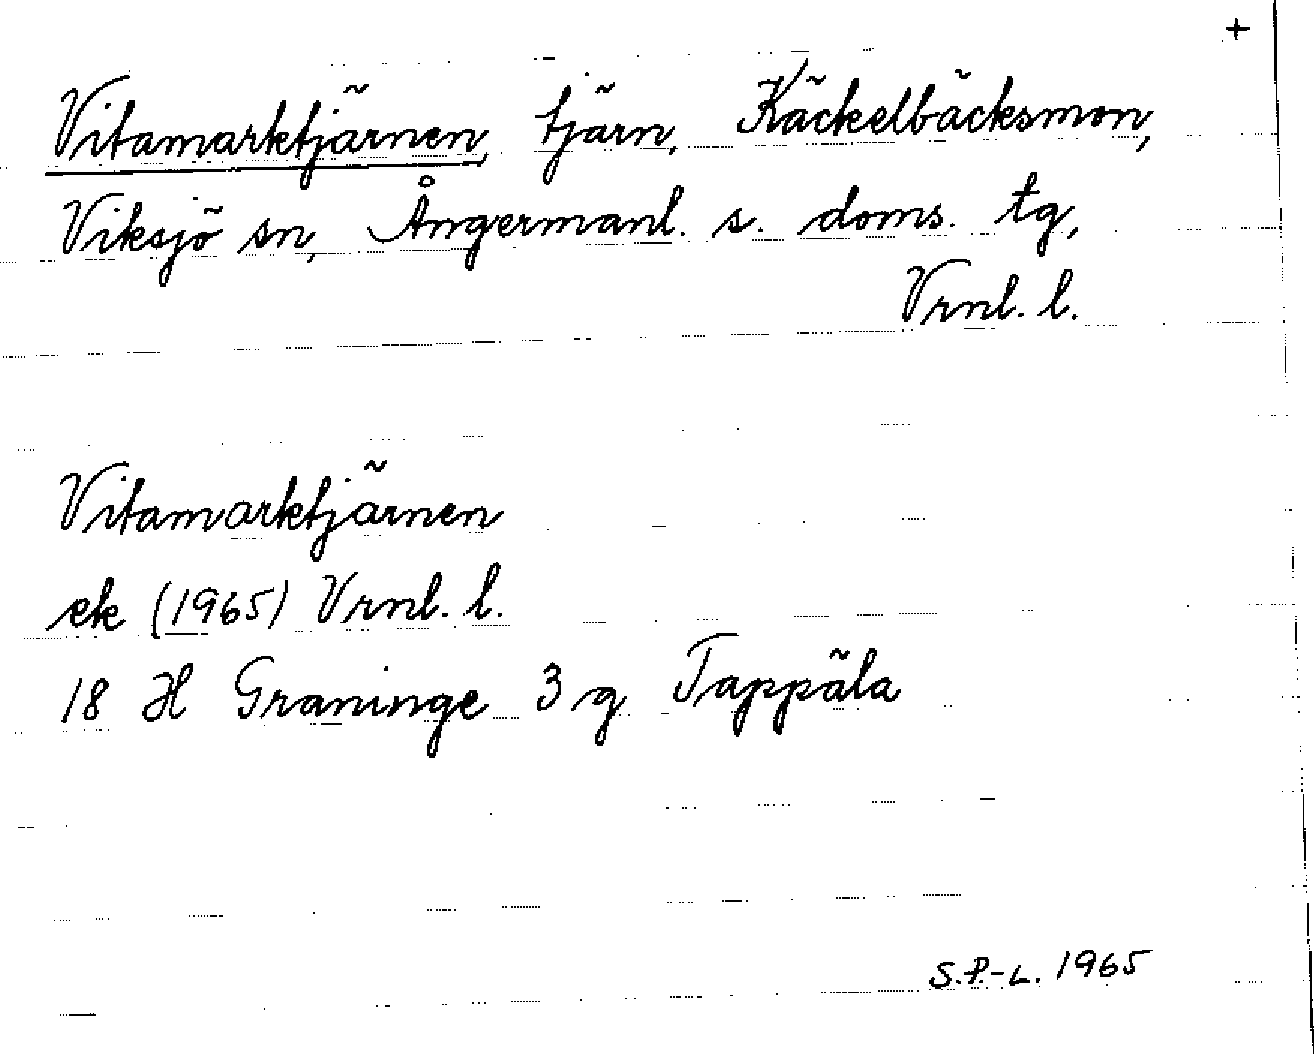 +
Vitamarktjärnen, tjärn, Käckelbäcksmon,
Viksjö sn, Ångermanl. s. doms. tg,
Vrnl. l.
Vitamarktjärnen
ek (1965) Vrnl. l.
18 H Graninge 3 g Tappäla
S.P.-L. 1965